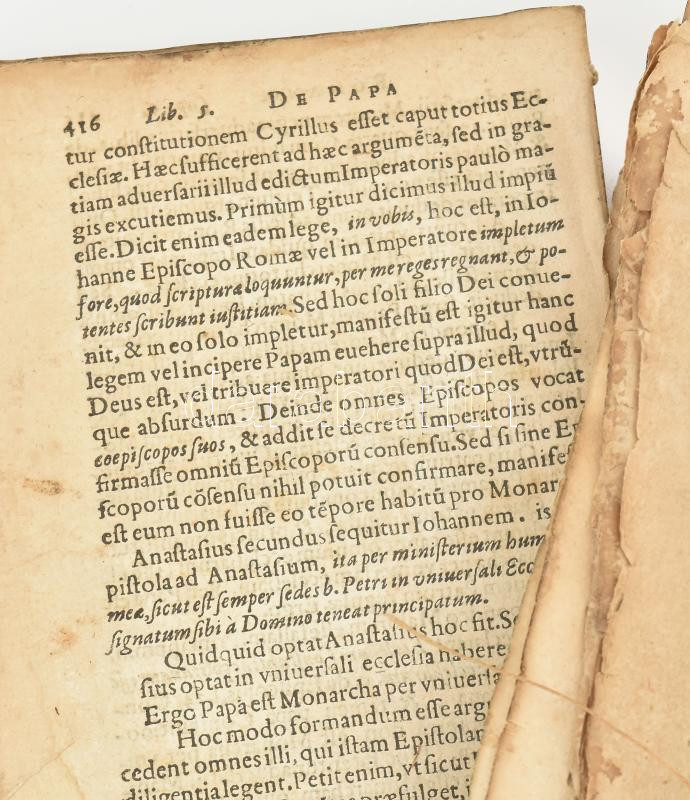 416 Lib. 5. DE PAPA
tur conſtitutionem Cyrillus eſſet caput totius Ec-
cleſiæ. Hæc ſufficerent ad hæc argumẽta, ſed in gra-
tiam aduerſarii illud edictum Imperatoris paulò ma-
gis excutiemus. Primùm igitur dicimus illud impiũ
eſſe. Dicit enim eadem lege, in vobis, hoc eſt, in Io-
hanne Epiſcopo Romæ vel in Imperatore impletum
fore, quod ſcripturæ loquuntur, per me reges regnant, & po-
tentes ſcribunt iuſtitiam. Sed hoc ſoli filio Dei conue-
nit, & in eo ſolo impletur, manifeſtũ eſt igitur hanc
legem vel incipere Papam euehere ſupra illud, quod
Deus eſt, vel tribuere imperatori quod Dei eſt, vtrũ-
que abſurdum. Deinde omnes Epiſcopos vocat
coepiſcopos ſuos, & addit ſe decretũ Imperatoris con-
firmaſſe omniũ Epiſcoporũ conſenſu. Sed ſi ſine E
ſcoporũ cõſenſu nihil potuit confirmare, manifeſ
eſt eum non fuiſſe eo tẽpore habitũ pro Monar
Anaſtaſius ſecundus ſequitur Iohannem. is
piſtola ad Anaſtaſium, ita per miniſterium hum
meæ, ſicut eſt ſemper ſedes b. Petri in vniuerſali Ecc
ſignatum ſibi à Domino teneat principatum.
Quidquid optat Anaſtaſius hoc fit. Se
ſius optat in vniuerſali eccleſia habere
Ergo Papa eſt Monarcha per vniuerſa
Hoc modo formandum eſſe argu
cedent omnes illi, qui iſtam Epiſtolam
diligentia legent. Petit enim, vt ſicut
præfulget,